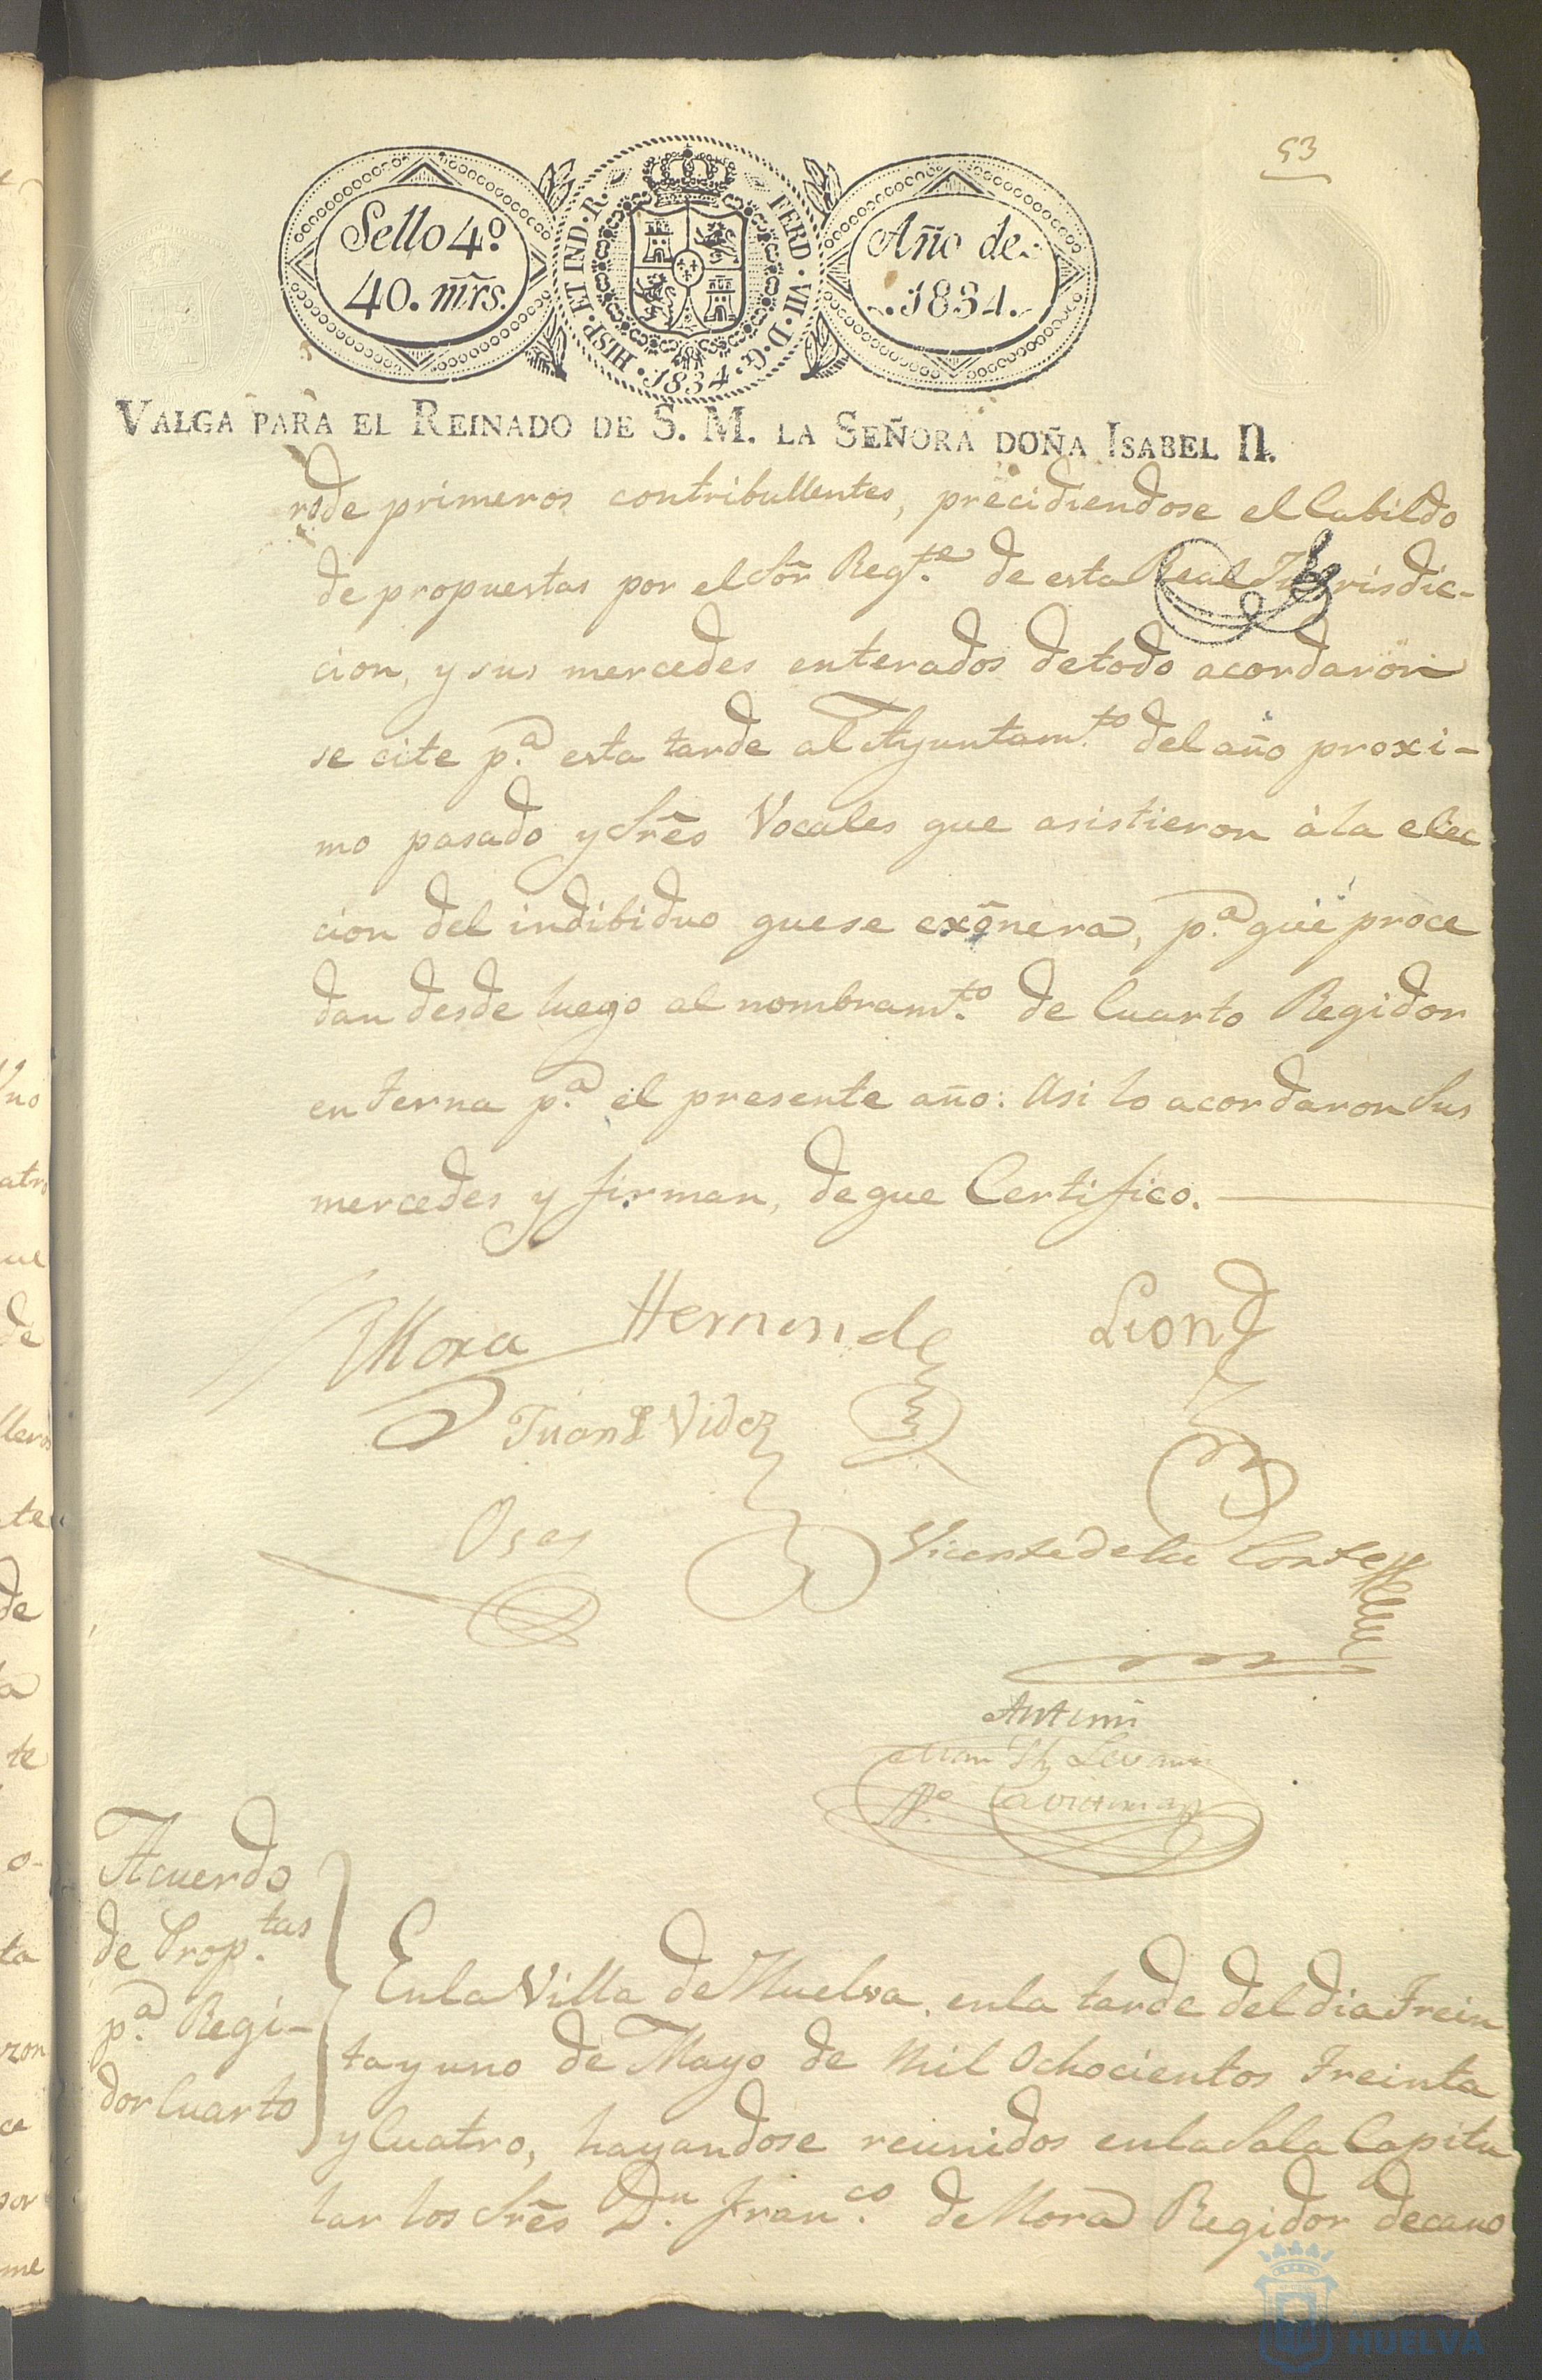 53
Sello 4º
40. mrs.
HISP. ET IND. R. FERD. VII. D. G. 1834.
Año de
1834.
VALGA PARA EL REINADO DE S. M. LA SEÑORA DOÑA ISABEL II.
de primeros contribullentes, precidiendose el Cabildo
de propuestas por el Sor̃ Reg.te de esta Real Jurisdic-
cion, y sus mercedes enterados de todo acordaron
se cite p.a esta tarde al Ayuntam.to del año proxi-
mo pasado y Srẽs Vocales que asistieron á la elec
cion del indibiduo que se exônera, p.a que proce
dan desde luego al nombram.to de Cuarto Regidor
en terna p.a el presente año: Asi lo acordaron Sus
mercedes y firman, de que Certifico.
Mora Hernandz Leon
Juan Videz
Oses
Vicente de la Corte
Ante mi
Acuerdo
de Prop.tas
p.a Regi-
dor Cuarto
En la Villa de Huelva, en la tarde del dia trein
ta y uno de Mayo de mil Ochocientos treinta
y Cuatro, hayandose reunidos en la Sala Capitu
lar los Srẽs D.n Fran.co de Mora Regidor decano
HUELVA